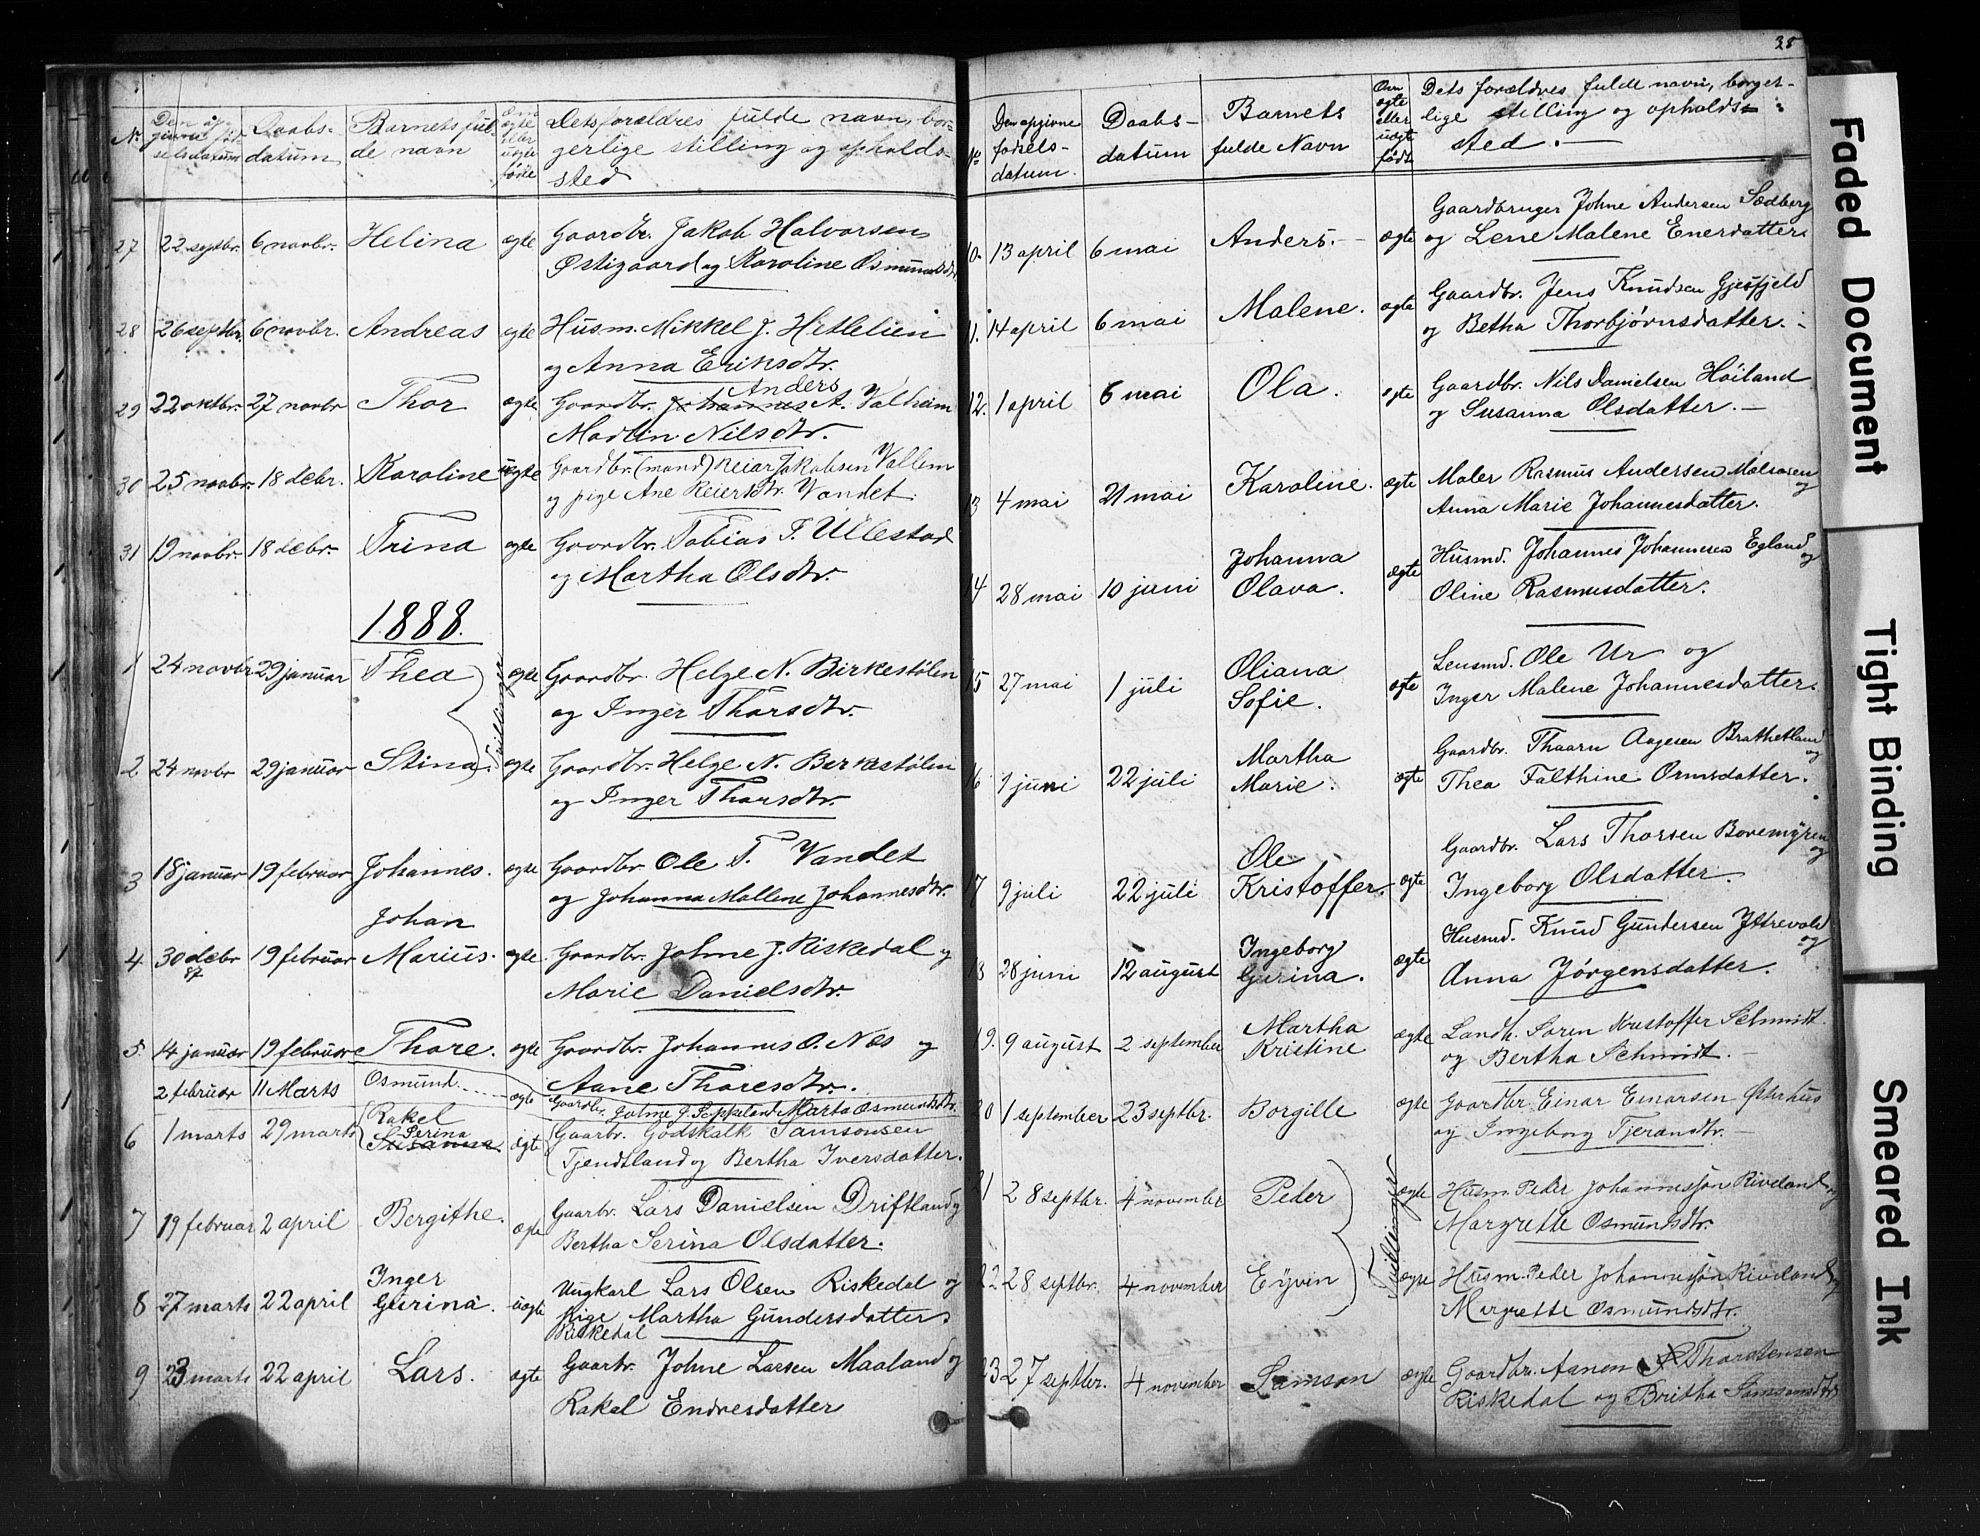 38
No.
Den opgivne fødselsdatum
Daabsdatum
Barnets fulde navn
Om ægte eller uægte fødte
Dets forældres fulde navn, borgerlige stilling og opholdssted
27 22 septbr. 6 novbr. Helina ægte Gaardbr. Jakob Halvorsen
Østigaard og Karoline Osmundsdtr.
28 26 septbr. 6 novbr. Andreas ægte Husm. Mikkel J. Hetlelien
og Anna Eriksdtr.
Anders
29 22 oktbr. 27 novbr Thor ægte Gaardbr. Johannes A. Valheim
Martin Nilsdtr.
30 25 novbr. 18 debr. Karoline uægte Gaardbr. (mand) Reiar Jakobsen Vallem
og pige Ane Reiersdtr. Vandet.
31 19 novbr. 18 debr. Trina ægte Gaardbr. Tobias T. Ullestad
og Martha Olsdtr.
1888.
1 24 novbr 29 januar Thea ægte Gaardbr. Helge N. Birkestølen
og Inger Thorsdtr.
Tvillinger
2 24 novbr 29 januar Stina. ægte Gaardbr. Helge N. Birkestølen
og Inger Thorsdtr.
3 18 januar 19 februar Johannes. ægte Gaardbr. Ole T. Vandet
og Johanna Mallene Johannesdtr.
Johan
4 30 debr 19 februar Marius. ægte Gaardbr. Johne J. Riskedal og
87
Marie Danielsdtr.
5. 14 januar 19 februar Thore. ægte Gaardbr. Johannes O. Næs og
Aane Thoresdtr.
2 februar 11 Marts Osmund ægte Gaardbr. Johne J. Marta Osmundsdtr.
Rakel
6 1 marts 29 marts Serina ægte Gaarbr. Godskalk Samsonsen
Susanne
Tjendtland og Bertha Iversdatter.
7 19 februar 2 april Bergithe. ægte Gaarbr. Lars Danielsen Driftland og
Bertha Serina Olsdatter.
Inger
8 27 marts 22 april Gurina. uægte Ungkarl Lars Olsen Riskedal og
Pige Martha Gundersdatter
Riskedal
9 23 marts 22 april Lars. ægte Gaarbr. Johne Larsen Maaland og
Rakel Endresdatter
No
Den opgivne fødsels-
datum.
Daabs-
datum
Barnets
fulde Navn
Om ægte eller uægte født
Dets forældres fulde navn, borger-
lige stilling og opholds-
sted.
10. 13 april 6 mai Anders. ægte Gaardbruger Johne Andersen Sædberg
og Lene Malene Enersdatter.
11. 14 april 6 mai Malene. ægte Gaardbr. Jens Knudsen Gjesfjeld
og Betha Thorbjørnsdatter.
12. 1 april 6 mai Ola. ægte Gaardbr. Nils Danielsen Høiland
og Susanna Olsdatter.
13 4 mai 21 mai Karoline. ægte Maler Rasmus Andersen og
Anna Marie Johannesdatter.
Johanna
14 28 mai 10 juni Olava. ægte Husmd. Johannes Johannesen Egland og
Oline Rasmusdatter.
15 27 mai 1 juli Oliana
Sofie. ægte Lensmd. Ole Ur og
Inger Malene Johannesdatter.
16 1 juni 22 juli Martha
Marie. ægte Gaardbr. Thaarn Aagesen Brathetland og
Thea Falthine Ormsdatter.
17 9 juli 22 juli Ole
Kristoffer. ægte Gaardbr. Lars Thorsen Bovemyren og
Ingeborg Olsdatter.
18 28 juni 12 august Ingeborg
Gurina. ægte Husmd. Knud Gundersen Ytrevold og
Anna Jørgensdatter.
19. 9 august 2 september Martha
Kristine ægte Landh. Søren Kristoffer Schmidt
og Bertha Schmidt.
20 1 september 23 septbr. Borgille ægte Gaardbr. Einar Einarsen Østerhus
og Ingeborg Tjerandtr.
21 28 septbr. 4 november Peder ægte Husm. Peder Johannesson Riveland og
Margrette Osmundsdtr.
Tvillinger
22. 28 septbr. 4 november Eyvin ægte Husm. Peder Johannesson Riveland og
Margrette Osmundsdtr.
23 27 septbr. 4 november Samson ægte Gaardbr. Aanen Thorstensen
Riskedal og Britha Samsonsdtr
Faded Document
Tight Binding
Smeared Ink